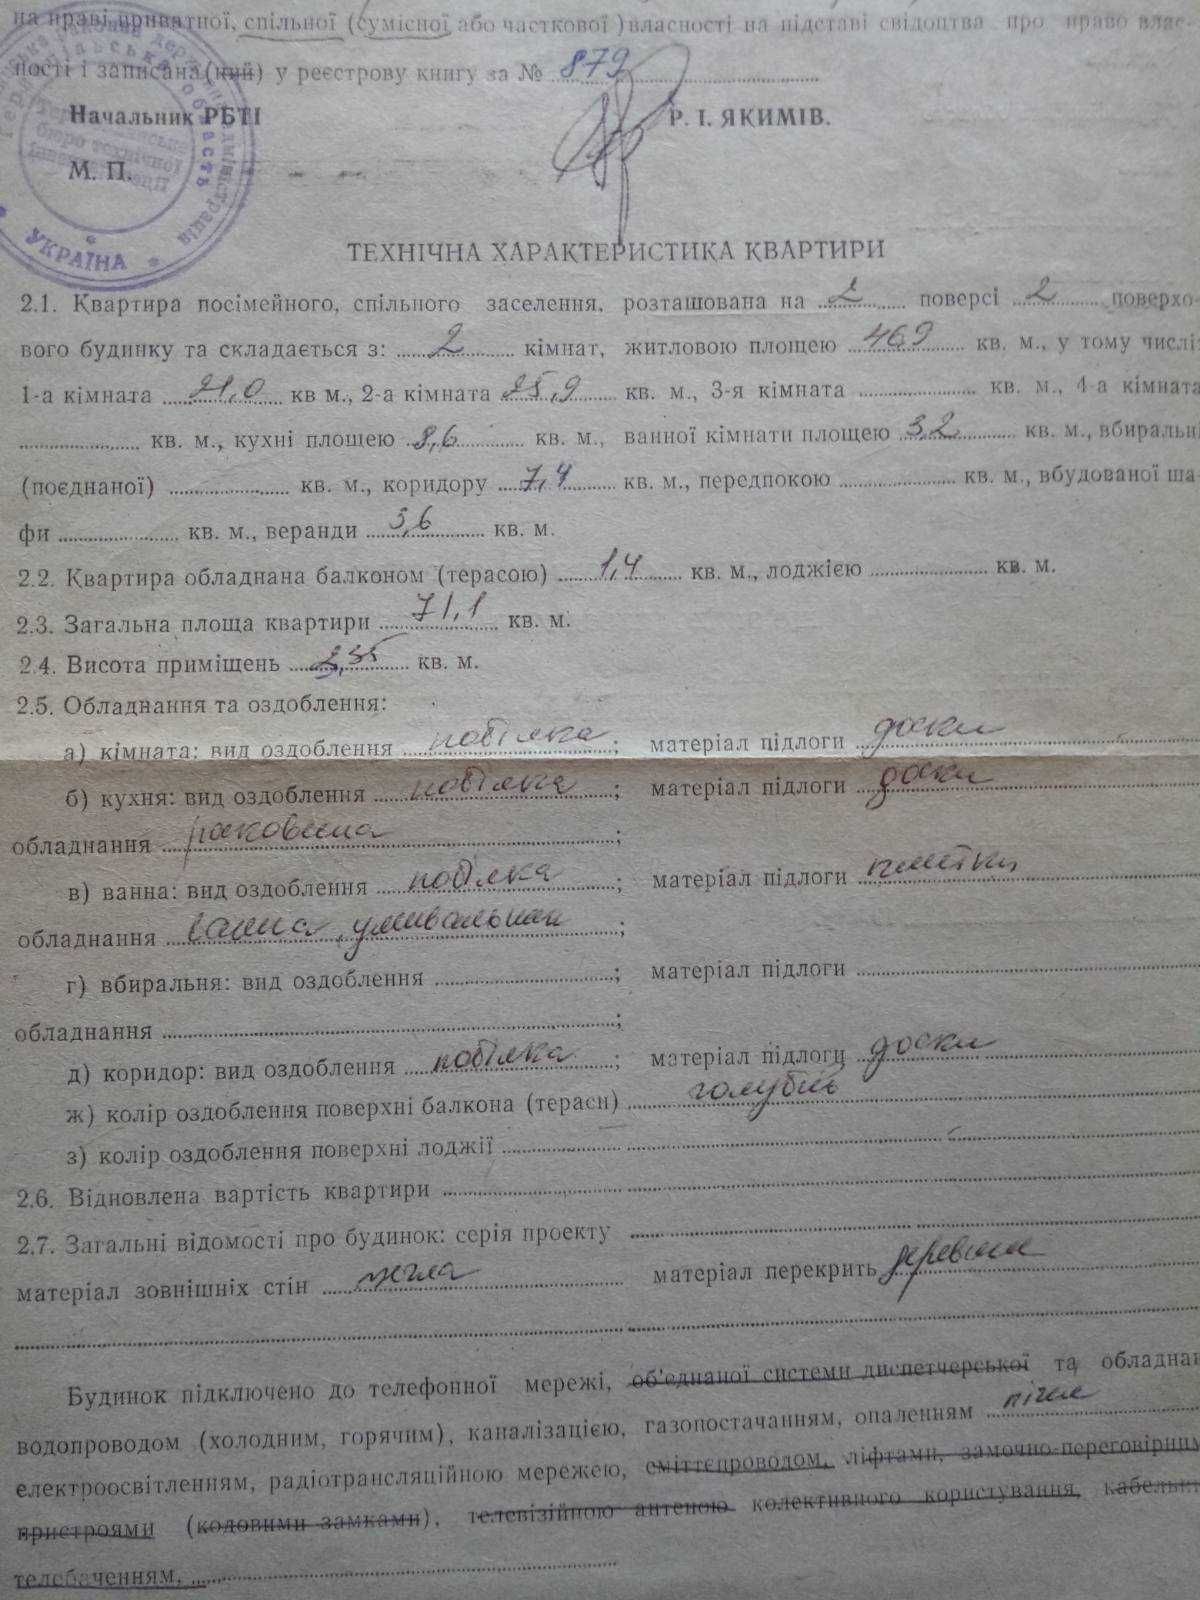 на праві приватної, спільної (сумісної або часткової) власності на підставі свідоцтва про право влас-
ності і записана (ний) у реєстрову книгу за № 879
Начальник РБТІ Р. І. ЯКИМІВ.
М. П.
УКРАЇНА
ТЕХНІЧНА ХАРАКТЕРИСТИКА КВАРТИРИ
2.1. Квартира посімейного, спільного заселення, розташована на 2 поверсі 2 поверхо-
вого будинку та складається з: 2 кімнат, житловою площею 46,9 кв. м., у тому числі:
1-а кімната 21,0 кв м., 2-а кімната 25,9 кв. м., 3-я кімната кв. м., 4-а кімната
кв. м., кухні площею 8,6 кв. м., ванної кімнати площею 3,2 кв. м., вбиральні
(поєднаної) кв. м., коридору 7,4 кв. м., передпокою кв. м., вбудованої ша-
фи кв. м., веранди 3,6 кв. м.
2.2. Квартира обладнана балконом (терасою) 1,4 кв. м., лоджією кв. м.
2.3. Загальна площа квартири 71,1 кв. м.
2.4. Висота приміщень 2,35 кв. м.
2.5. Обладнання та оздоблення:
а) кімната: вид оздоблення побілка; матеріал підлоги доски
б) кухня: вид оздоблення побілка; матеріал підлоги доски
обладнання раковина;
в) ванна: вид оздоблення побілка; матеріал підлоги плитки
обладнання ванна, умивальник;
г) вбиральня: вид оздоблення ; матеріал підлоги
обладнання ;
д) коридор: вид оздоблення побілка; матеріал підлоги доски
ж) колір оздоблення поверхні балкона (тераси) голубий
з) колір оздоблення поверхні лоджії
2.6. Відновлена вартість квартири
2.7. Загальні відомості про будинок: серія проекту
матеріал зовнішніх стін цегла матеріал перекрить деревяне
Будинок підключено до телефонної мережі, об'єднаної системи диспетчерської та обладнан
водопроводом (холодним, горячим), каналізацією, газопостачанням, опаленням пічне
електроосвітленням, радіотрансляційною мережею, сміттєпроводом, ліфтами, замочно-переговірним
пристроями (кодовими замками), телевізійною антеною колективного користування, кабельни
телебаченням,